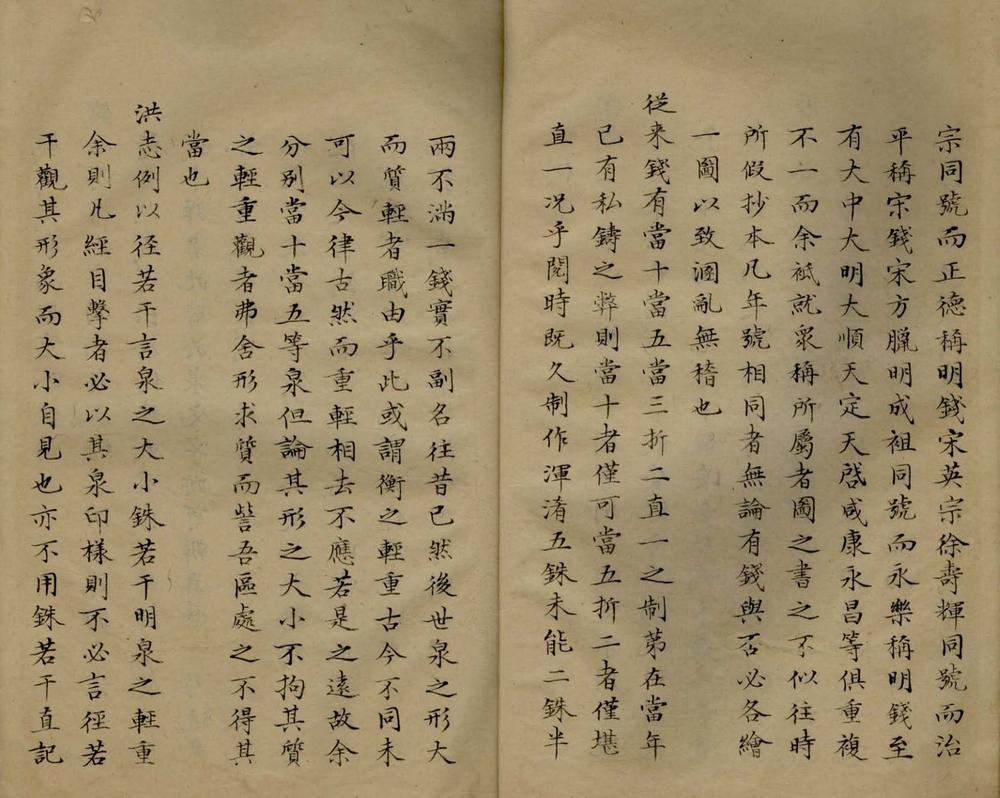 宗同號而正德稱明錢宋英宗徐壽輝同號而治
平稱宋錢宋方臘明成祖同號而永樂稱明錢至
有大中大明大順天定天啓咸康永昌等俱重複
不一而余祗就衆稱所屬者圖之書之不似往時
所假抄本凡年號相同者無論有錢與否必各繪
一圖以致溷亂無稽也
從来錢有當十當五當三折二直一之制苐在當年
已有私鑄之弊則當十者僅可當五折二者僅堪
直一况乎閱時既久制作渾淆五銖未能二銖半
兩不滿一錢實不副名往昔已然後世泉之形大
而質輕者職由乎此或謂衡之輕重古今不同未
可以今律古然而重輕相去不應若是之遠故余
分别當十當五等泉但論其形之大小不拘其質
之輕重觀者弗舍形求質而訾吾區處之不得其
當也
洪志例以径若干言泉之大小銖若干明泉之輕重
余則凡經目擊者必以其泉印樣則不必言徑若
干觀其形象而大小自見也亦不用銖若干直記